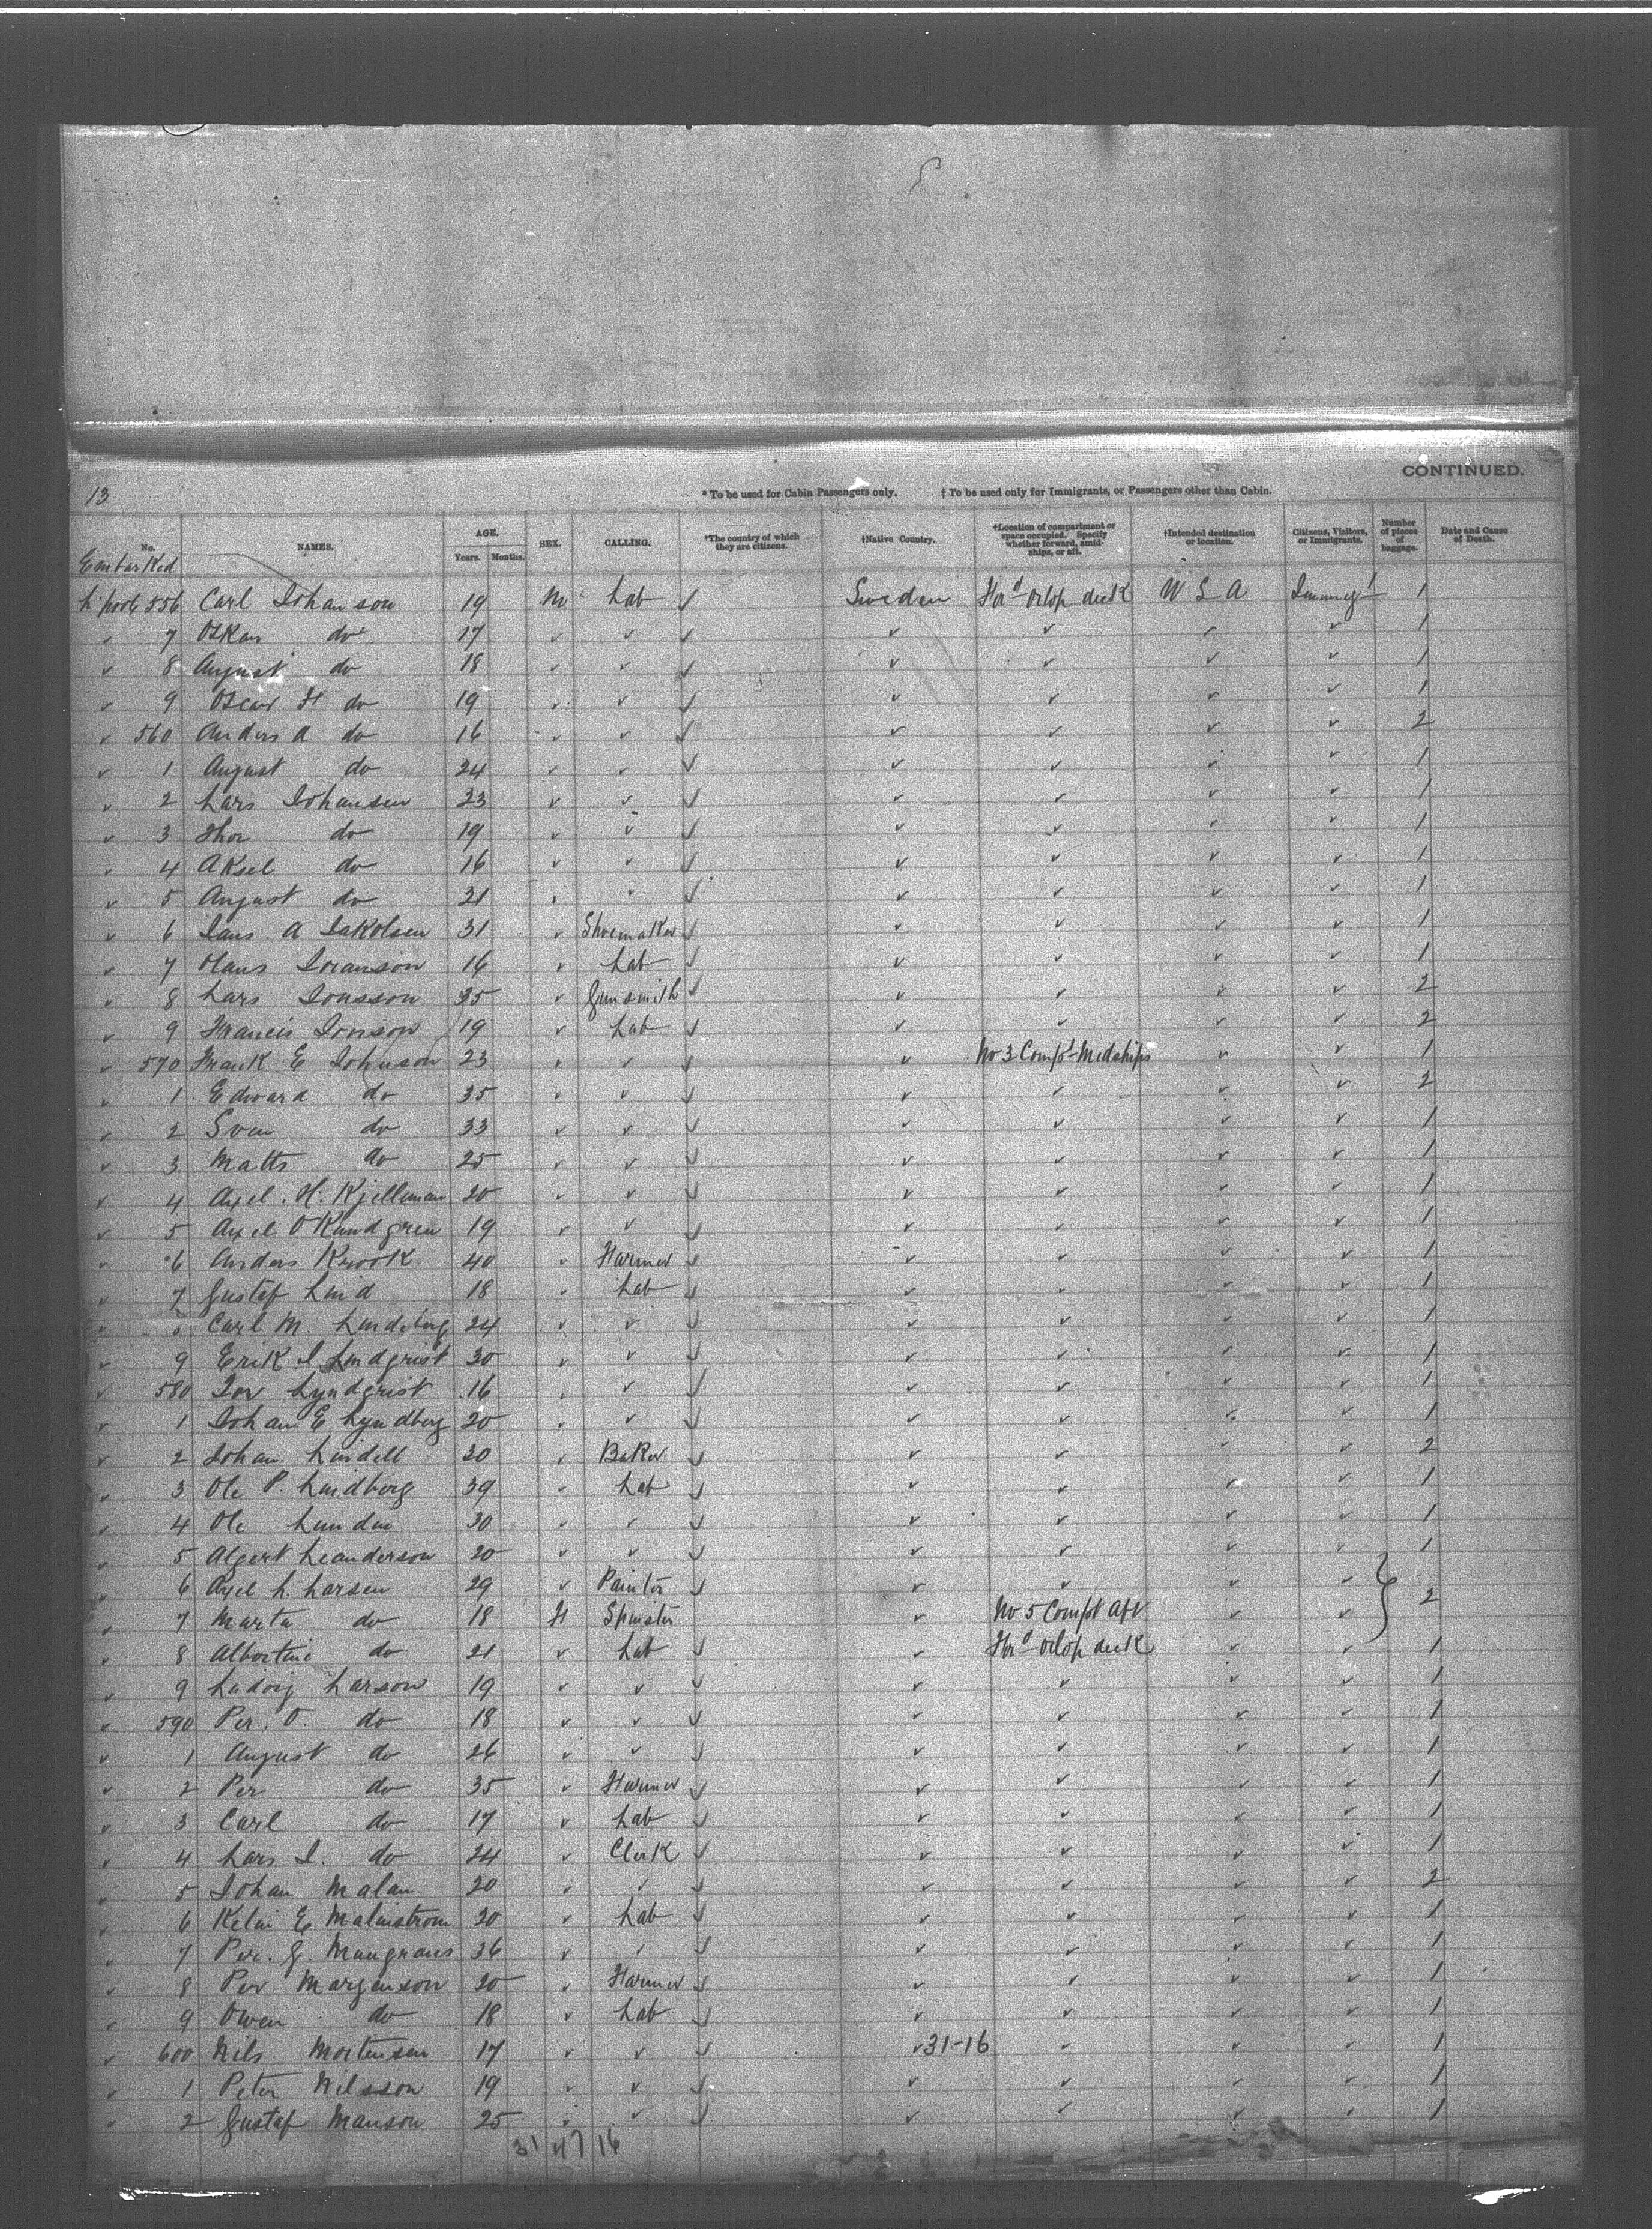 CONTINUED.
13
* To be used for Cabin Passengers only. † To be used only for Immigrants, or Passengers other than Cabin.
No. NAMES. AGE. Years. Months. SEX. CALLING. *The country of which they are citizens. †Native Country. †Location of compartment or space occupied. Specify whether forward, amidships, or aft. †Intended destination or location. Citizens, Visitors, or Immigrants. Number of pieces of baggage. Date and Cause of Death.
Embarked
L'pool 556 Carl Johanson 19 M Lab ✓ Sweden For'd orlop deck U S A Immig't 1
✓ 7 Oskar do 17 ✓ ✓ ✓ ✓ ✓ ✓ ✓ 1
✓ 8 August do 18 ✓ ✓ ✓ ✓ ✓ ✓ ✓ 1
✓ 9 Oscar F do 19 ✓ ✓ ✓ ✓ ✓ ✓ ✓ 1
✓ 560 Anders A do 16 ✓ ✓ ✓ ✓ ✓ ✓ ✓ 2
✓ 1 August do 24 ✓ ✓ ✓ ✓ ✓ ✓ ✓ 1
✓ 2 Lars Johansen 23 ✓ ✓ ✓ ✓ ✓ ✓ ✓ 1
✓ 3 Thor do 19 ✓ ✓ ✓ ✓ ✓ ✓ ✓ 1
✓ 4 Aksel do 16 ✓ ✓ ✓ ✓ ✓ ✓ ✓ 1
✓ 5 August do 21 ✓ ✓ ✓ ✓ ✓ ✓ ✓ 1
✓ 6 A Jakolsen 31 ✓ Shoemaker ✓ ✓ ✓ ✓ ✓ 1
✓ 7 Olaus Joranson 16 ✓ Lab ✓ ✓ ✓ ✓ ✓ 1
✓ 8 Lars Jonsson 35 ✓ Gunsmith ✓ ✓ ✓ ✓ ✓ 2
✓ 9 Francis Jonson 19 ✓ Lab ✓ ✓ ✓ ✓ ✓ 2
✓ 570 Frank E Johnson 23 ✓ ✓ ✓ ✓ No 3 Comp't Midships ✓ ✓ 1
✓ 1 Edward do 35 ✓ ✓ ✓ ✓ ✓ ✓ ✓ 2
✓ 2 Sven do 33 ✓ ✓ ✓ ✓ ✓ ✓ ✓ 1
✓ 3 Matts do 25 ✓ ✓ ✓ ✓ ✓ ✓ ✓ 1
✓ 4 Axel H. Kjellman 20 ✓ ✓ ✓ ✓ ✓ ✓ ✓ 1
✓ 5 Axel O Kundgren 19 ✓ ✓ ✓ ✓ ✓ ✓ ✓ 1
✓ 6 Anders Krook 40 ✓ Farmer ✓ ✓ ✓ ✓ ✓ 1
✓ 7 Gustaf Lind 18 ✓ Lab ✓ ✓ ✓ ✓ ✓ 1
✓ 8 Carl M. Lindeberg 24 ✓ ✓ ✓ ✓ ✓ ✓ ✓ 1
✓ 9 Erik J Lindqrist 30 ✓ ✓ ✓ ✓ ✓ ✓ ✓ 1
✓ 580 Lyndqrist 16 ✓ ✓ ✓ ✓ ✓ ✓ ✓ 1
✓ 1 Johan E Lyndberg 20 ✓ ✓ ✓ ✓ ✓ ✓ ✓ 1
✓ 2 Johan Lindell 30 ✓ Baker ✓ ✓ ✓ ✓ ✓ 2
✓ 3 Ole P. Lindberg 39 ✓ Lab ✓ ✓ ✓ ✓ ✓ 1
✓ 4 Ole Lunden 30 ✓ ✓ ✓ ✓ ✓ ✓ ✓ 1
✓ 5 Algert Leanderson 20 ✓ ✓ ✓ ✓ ✓ ✓ ✓ 1
✓ 6 Axel L. Larsen 29 ✓ Painter ✓ ✓ ✓ ✓ ✓
✓ 7 Marta do 18 F Spinster ✓ No 5 Comp't Aft ✓ ✓ } 2
✓ 8 Albertine do 21 ✓ Lab ✓ ✓ For'd orlop deck ✓ ✓ 1
✓ 9 Ludvig Larson 19 ✓ ✓ ✓ ✓ ✓ ✓ ✓ 1
✓ 590 Per. O. do 18 ✓ ✓ ✓ ✓ ✓ ✓ ✓ 1
✓ 1 August do 26 ✓ ✓ ✓ ✓ ✓ ✓ ✓ 1
✓ 2 Per do 35 ✓ Farmer ✓ ✓ ✓ ✓ ✓ 1
✓ 3 Carl do 17 ✓ Lab ✓ ✓ ✓ ✓ ✓ 1
✓ 4 Lars J. do 24 ✓ Clerk ✓ ✓ ✓ ✓ ✓ 1
✓ 5 Johan Malan 20 ✓ ✓ ✓ ✓ ✓ ✓ ✓ 2
✓ 6 E Malmstrom 20 ✓ Lab ✓ ✓ ✓ ✓ ✓ 1
✓ 7 Per. G. 36 ✓ ✓ ✓ ✓ ✓ ✓ ✓ 1
✓ 8 Per Margenson 20 ✓ Farmer ✓ ✓ ✓ ✓ ✓ 1
✓ 9 Owen do 18 ✓ Lab ✓ ✓ ✓ ✓ ✓ 1
✓ 600 Nils Mortensen 17 ✓ ✓ ✓ ✓ 31-16 ✓ ✓ ✓ 1
✓ 1 Peter Nilsson 19 ✓ ✓ ✓ ✓ ✓ ✓ ✓ 1
✓ 2 Gustaf Manson 25 ✓ ✓ ✓ ✓ ✓ ✓ ✓ 1
31 47 16